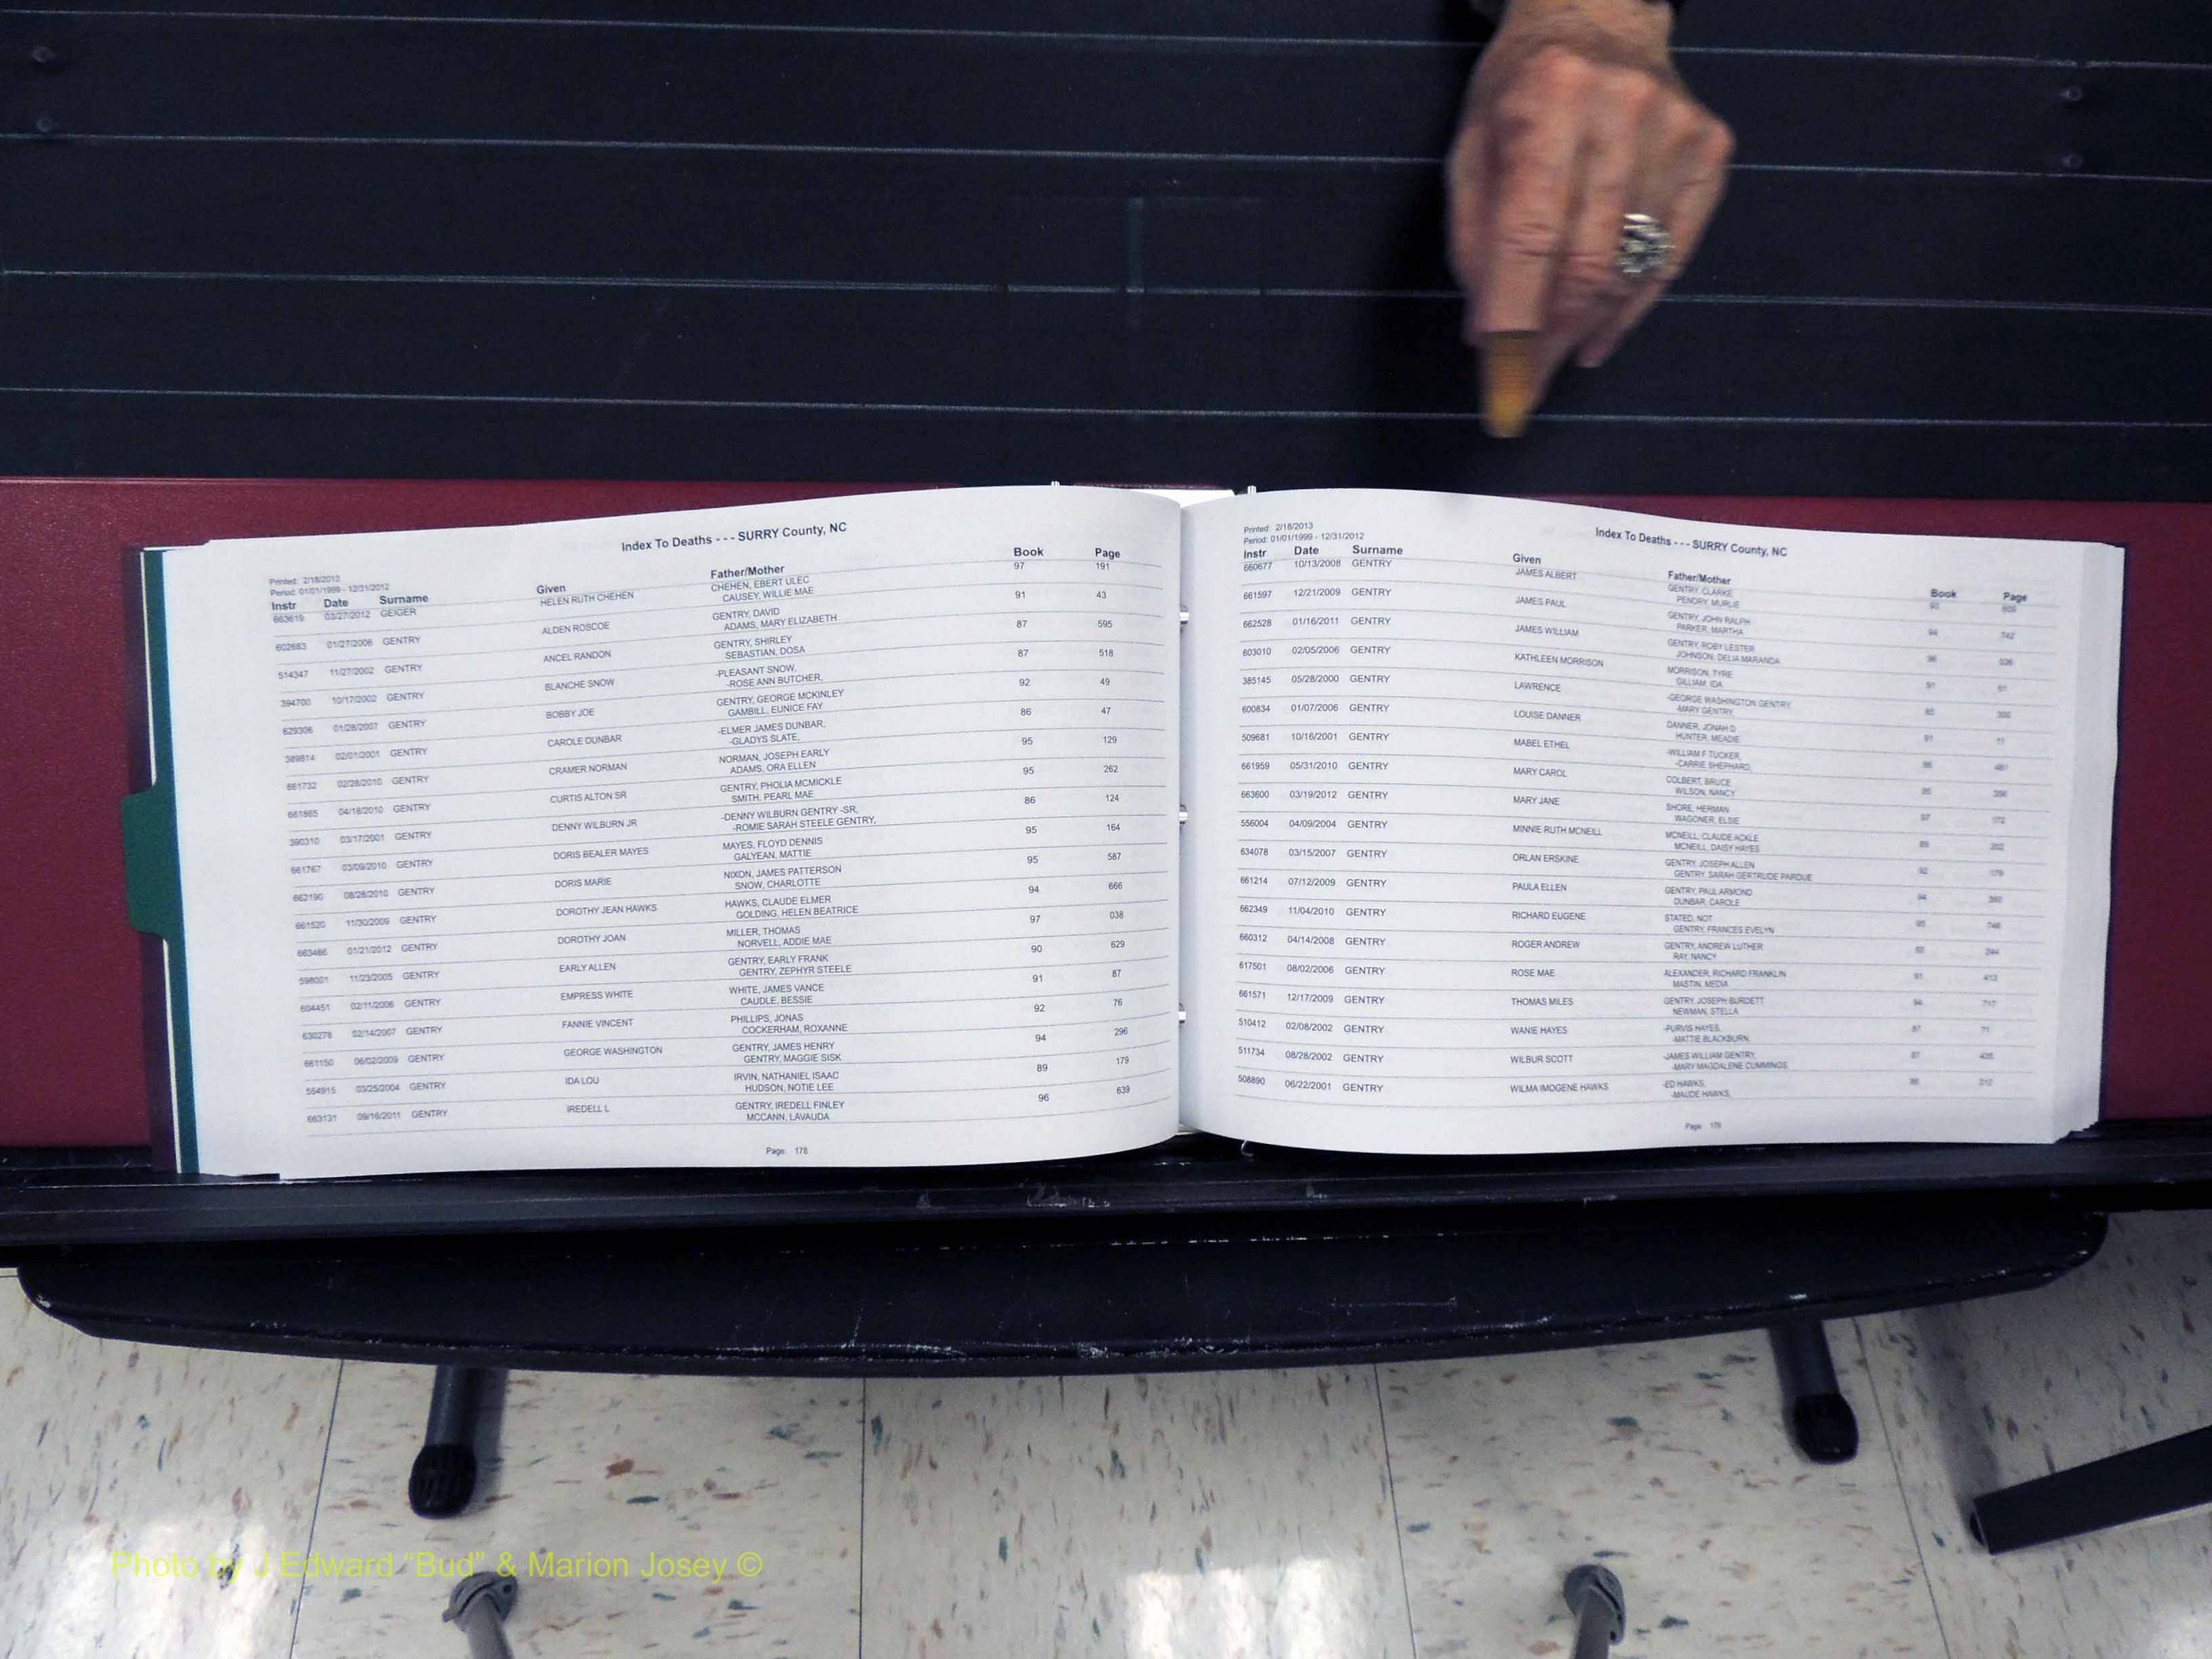 Index To Deaths - - - SURRY County, NC
Printed: 2/18/2013
Period: 01/01/1999 - 12/31/2012
Instr Date Surname Given Father/Mother Book Page
663619 03/27/2012 GEIGER HELEN RUTH CHEHEN CHEHEN, EBERT ULEC 97 191
CAUSEY, WILLIE MAE
602683 01/27/2006 GENTRY ALDEN ROSCOE GENTRY, DAVID 91 43
ADAMS, MARY ELIZABETH
514347 11/27/2002 GENTRY ANCEL RANDON GENTRY, SHIRLEY 87 595
SEBASTIAN, DOSA
394700 10/17/2002 GENTRY BLANCHE SNOW -PLEASANT SNOW, 87 518
-ROSE ANN BUTCHER,
629306 01/28/2007 GENTRY BOBBY JOE GENTRY, GEORGE MCKINLEY 92 49
GAMBILL, EUNICE FAY
389814 02/01/2001 GENTRY CAROLE DUNBAR -ELMER JAMES DUNBAR, 86 47
-GLADYS SLATE,
661732 02/28/2010 GENTRY CRAMER NORMAN NORMAN, JOSEPH EARLY 95 129
ADAMS, ORA ELLEN
661865 04/18/2010 GENTRY CURTIS ALTON SR GENTRY, PHOLIA MCMICKLE 95 262
SMITH, PEARL MAE
390310 03/17/2001 GENTRY DENNY WILBURN JR -DENNY WILBURN GENTRY -SR, 86 124
-ROMIE SARAH STEELE GENTRY,
661767 03/09/2010 GENTRY DORIS BEALER MAYES MAYES, FLOYD DENNIS 95 164
GALYEAN, MATTIE
662190 08/28/2010 GENTRY DORIS MARIE NIXON, JAMES PATTERSON 95 587
SNOW, CHARLOTTE
661520 11/30/2009 GENTRY DOROTHY JEAN HAWKS HAWKS, CLAUDE ELMER 94 666
GOLDING, HELEN BEATRICE
663466 01/21/2012 GENTRY DOROTHY JOAN MILLER, THOMAS 97 038
NORVELL, ADDIE MAE
598001 11/23/2005 GENTRY EARLY ALLEN GENTRY, EARLY FRANK 90 629
GENTRY, ZEPHYR STEELE
604451 02/11/2006 GENTRY EMPRESS WHITE WHITE, JAMES VANCE 91 87
CAUDLE, BESSIE
630278 02/14/2007 GENTRY FANNIE VINCENT PHILLIPS, JONAS 92 76
COCKERHAM, ROXANNE
661150 06/02/2009 GENTRY GEORGE WASHINGTON GENTRY, JAMES HENRY 94 296
GENTRY, MAGGIE SISK
554915 03/25/2004 GENTRY IDA LOU IRVIN, NATHANIEL ISAAC 89 179
HUDSON, NOTIE LEE
663131 09/16/2011 GENTRY IREDELL L GENTRY, IREDELL FINLEY 96 639
MCCANN, LAVAUDA
Page: 178
Printed: 2/18/2013
Index To Deaths - - - SURRY County, NC
Period: 01/01/1999 - 12/31/2012
Instr Date Surname Given Father/Mother Book Page
660677 10/13/2008 GENTRY JAMES ALBERT GENTRY, CLARKE
PENDRY, MURLIE
661597 12/21/2009 GENTRY JAMES PAUL GENTRY, JOHN RALPH 94 742
PARKER, MARTHA
662528 01/16/2011 GENTRY JAMES WILLIAM GENTRY, ROBY LESTER 96 036
JOHNSON, DELIA MARANDA
603010 02/05/2006 GENTRY KATHLEEN MORRISON MORRISON, TYRE 91 61
GILLIAM, IDA
385145 05/28/2000 GENTRY LAWRENCE -GEORGE WASHINGTON GENTRY, 85
-MARY GENTRY,
600834 01/07/2006 GENTRY LOUISE DANNER DANNER, JONAH D 91 11
HUNTER, MEADIE
509681 10/16/2001 GENTRY MABEL ETHEL -WILLIAM F TUCKER, 86 461
-CARRIE SHEPHARD,
661959 05/31/2010 GENTRY MARY CAROL COLBERT, BRUCE 95 356
WILSON, NANCY
663600 03/19/2012 GENTRY MARY JANE SHORE, HERMAN 97 172
WAGONER, ELSIE
556004 04/09/2004 GENTRY MINNIE RUTH MCNEILL MCNEILL, CLAUDE ACKLE 89 202
MCNEILL, DAISY HAYES
634078 03/15/2007 GENTRY ORLAN ERSKINE GENTRY, JOSEPH ALLEN 92 179
GENTRY, SARAH GERTRUDE PARDUE
661214 07/12/2009 GENTRY PAULA ELLEN GENTRY, PAUL ARMOND 94 360
DUNBAR, CAROLE
662349 11/04/2010 GENTRY RICHARD EUGENE STATED, NOT 95 746
GENTRY, FRANCES EVELYN
660312 04/14/2008 GENTRY ROGER ANDREW GENTRY, ANDREW LUTHER 93 244
RAY, NANCY
617501 08/02/2006 GENTRY ROSE MAE ALEXANDER, RICHARD FRANKLIN 91 413
MASTIN, MEDIA
661571 12/17/2009 GENTRY THOMAS MILES GENTRY, JOSEPH BURDETT 94 717
NEWMAN, STELLA
510412 02/08/2002 GENTRY WANIE HAYES -PURVIS HAYES, 87 71
-MATTIE BLACKBURN,
511734 08/28/2002 GENTRY WILBUR SCOTT -JAMES WILLIAM GENTRY, 87 435
-MARY MAGDALENE CUMMINGS,
508890 06/22/2001 GENTRY WILMA IMOGENE HAWKS -ED HAWKS, 86 312
-MAUDE HAWKS,
Page: 179
Photo by J Edward "Bud" & Marion Josey ©